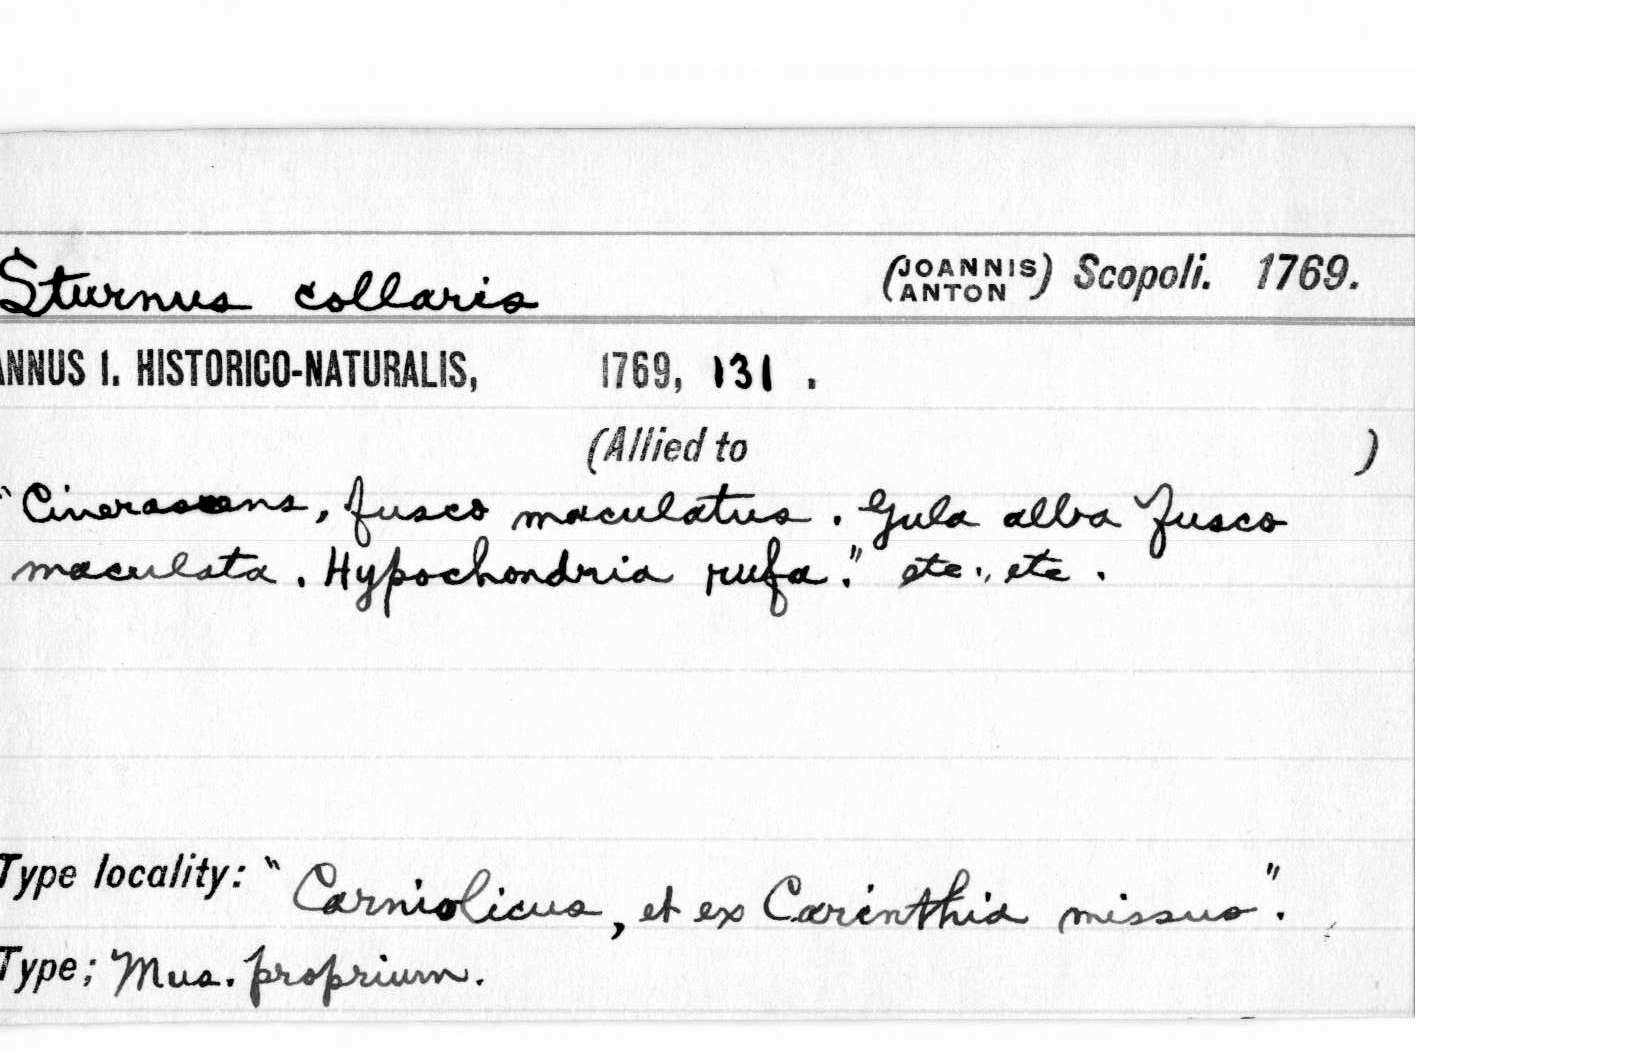 Sturnus collaris (JOANNIS ANTON) Scopoli. 1769.
ANNUS I. HISTORICO-NATURALIS, 1769, 131 .
(Allied to )
"Cinerascens, fusco maculatus. Gula alba fusco
maculata. Hypochondria rufa." etc., etc.
Type locality: "Carniolicus, et ex Carinthia missus".
Type; Mus. proprium.